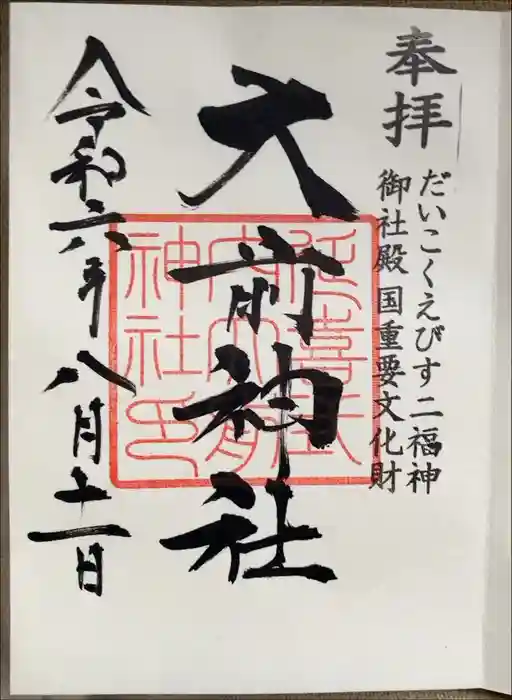 奉拝
だいこくえびす二福神
御社殿 国重要文化財
大前神社
延喜式
内大前
神社印
令和六年八月十一日